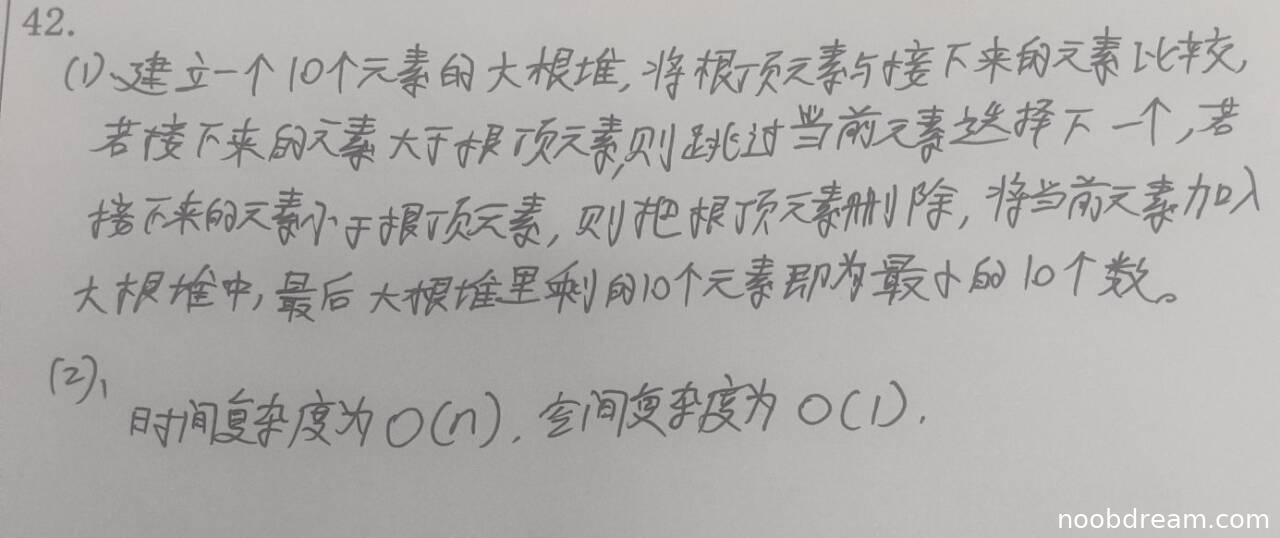 42.
(1)、建立一个10个元素的大根堆,将根顶元素与接下来的元素比较,
若接下来的元素大于根顶元素,则跳过当前元素选择下一个,若
接下来的元素小于根顶元素,则把根顶元素删除,将当前元素加入
大根堆中,最后大根堆里剩的10个元素即为最小的10个数。
(2)、
时间复杂度为O(n).空间复杂度为O(1).
noobdream.com